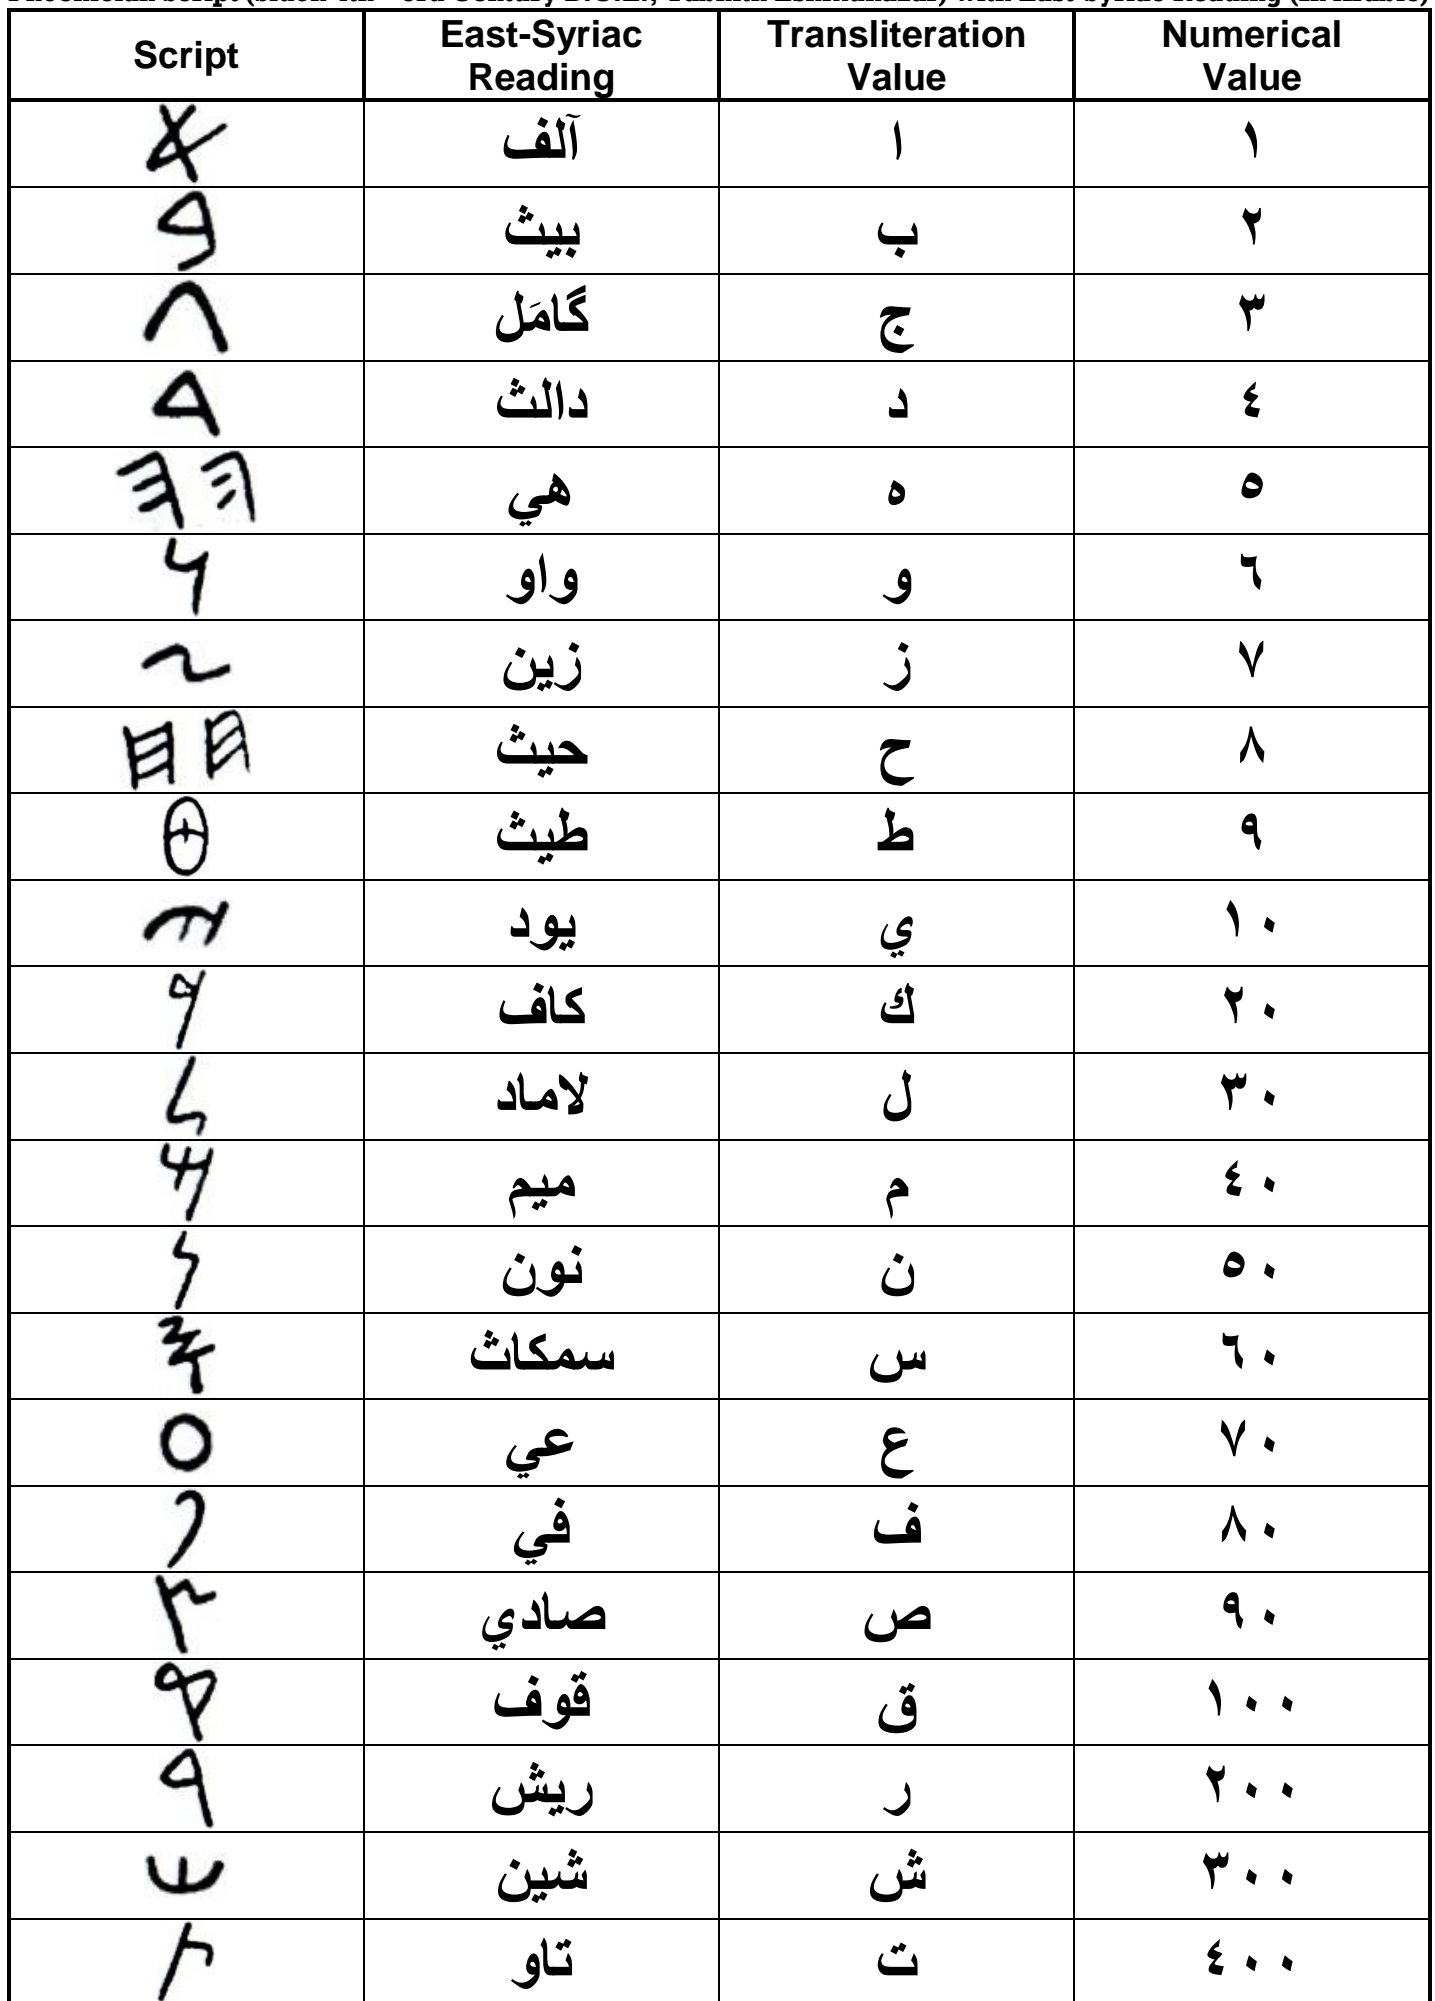 Script East-Syriac Reading Transliteration Value Numerical Value
𐤀 آلف ا ١
𐤁 بيث ب ٢
𐤂 گامَل ج ٣
𐤃 دالث د ٤
𐤄 𐤄 هي ه ٥
𐤅 واو و ٦
𐤆 زين ز ٧
𐤇 𐤇 حيث ح ٨
𐤈 طيث ط ٩
𐤉 يود ي ١٠
𐤊 كاف ك ٢٠
𐤋 لاماد ل ٣٠
𐤌 ميم م ٤٠
𐤍 نون ن ٥٠
𐤎 سمكاث س ٦٠
𐤏 عي ع ٧٠
𐤐 في ف ٨٠
𐤑 صادي ص ٩٠
𐤒 قوف ق ١٠٠
𐤓 ريش ر ٢٠٠
𐤔 شين ش ٣٠٠
𐤕 تاو ت ٤٠٠